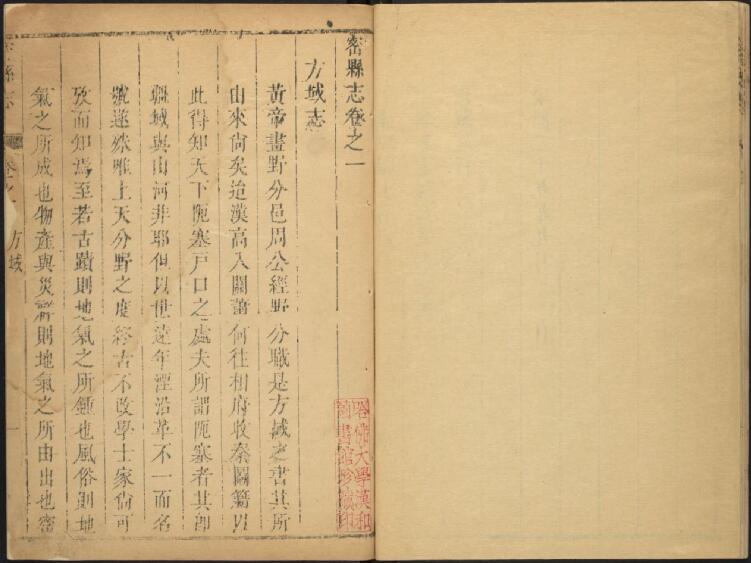 密縣志卷之一
方域志
黃帝畫野分邑周公經野分職是方域之書其所
由來尚矣迨漢高入關蕭何往相府收秦圖籍以
此得知天下阨塞戶口之處夫所謂阨塞者其卽
疆域與山河非耶但以世遠年湮沿革不一而名
號遂殊唯上天分野之度終古不改學士家尚可
攷而知焉至若古蹟則地氣之所鍾也風俗則地
氣之所成也物產與災祥則地氣之所由出也密
縣志
卷之一
方域
一
哈佛大學漢和
圖書館珍藏印